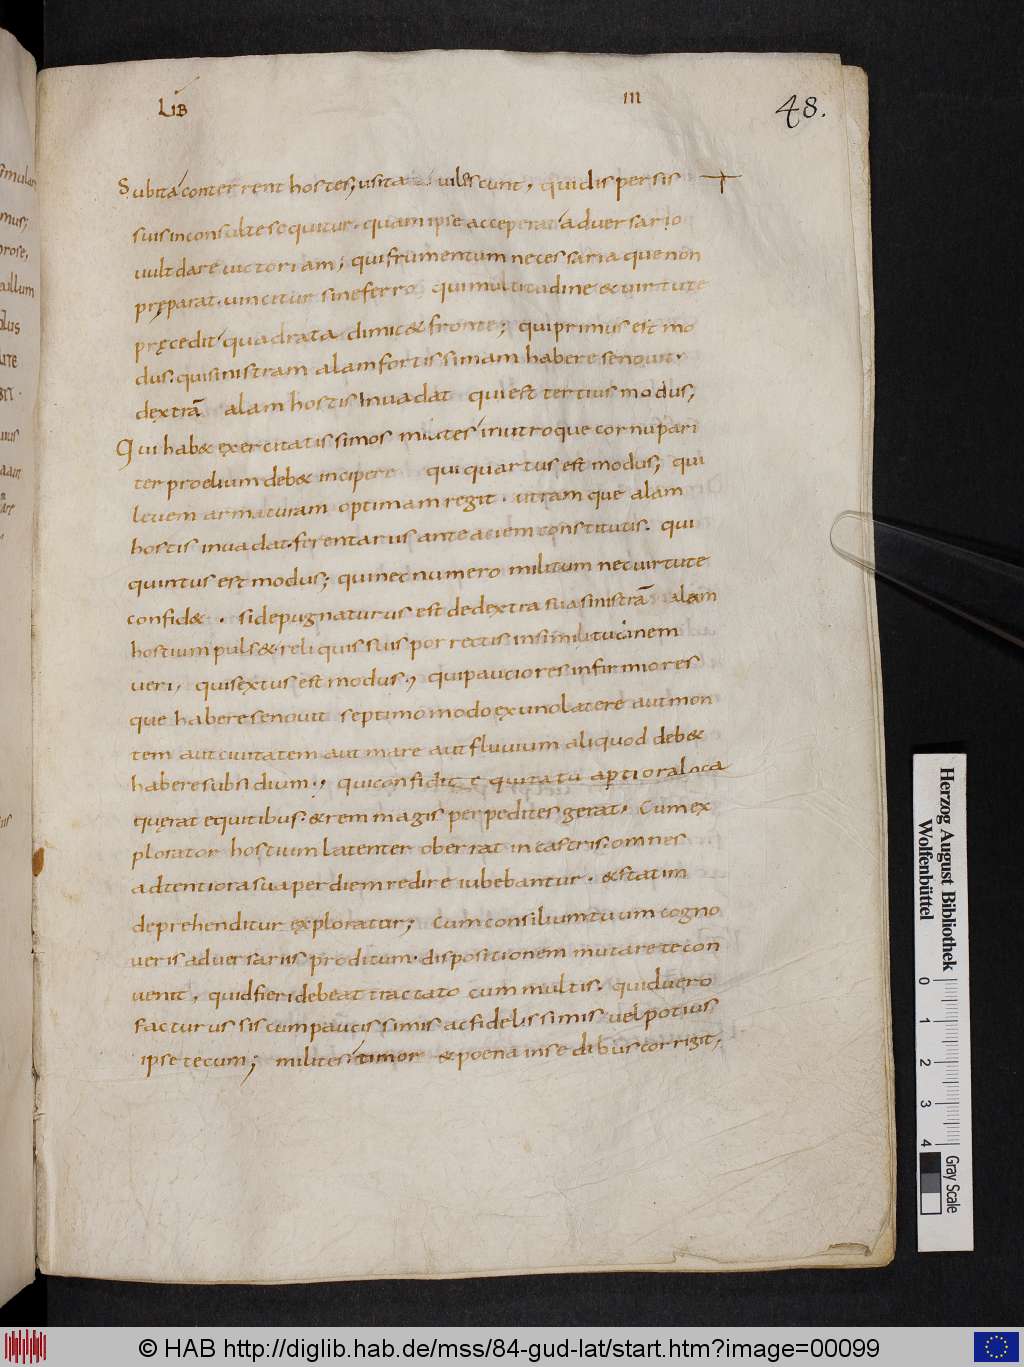 LIB III 48.
Subita conterrent hostes, usita vilescunt, qui dispersis
suis inconsulte sequitur. quam ipse acceperat adversario
vult dare victoriam; qui frumentum necessaria que non
pręparat. vincitur sine ferro qui multitudine & virtute
pręcedit quadrata dimic& fronte; qui primus est mo
dus. qui sinistram alam fortissimam habere se novit.
dextrā alam hostis Invadat qui est tertius modus;
Qui hab& exercitatissimos milites in utroque cornu pari
ter proelium deb& incipere qui quartus est modus; qui
levem armaturam optimam regit. utramque alam
hostis invadat. ferentarus ante aciem constitutis. qui
quintus est modus; qui nec numero militum nec virtute
confid& . si depugnaturus est de dextra sua sinistrā alam
hostium puls& reliquis suis porrectis in similitudinem
veri, qui sextus est modus, qui pauciores infirmiores
que habere se novit septimo modo ex uno latere aut mon
tem aut civitatem aut mare aut fluvium aliquod deb&
habere subsidium., qui confidit equitatu aptiora loca
quęrat equitibus. & rem magis per pedites gerat. Cum ex
plorator hostium latenter oberrat in castris. omnes
ad tentiora sua per diem redire iubebantur. & statim
deprehenditur explorator; Cum consilium tuum cogno
veris adversariis proditum. dispositionem mutare te con
venit, quid fieri debeat tractato cum multis. quid vero
facturus sis cum paucissimis ac fidelissimis vel potius
ipse tecum; milites timor & poena in sedibus corrigit,
simulan
mus;
prose,
aullum
Herzog August Bibliothek
Wolfenbüttel
0 1 2 3 4
Gray Scale
© HAB http://diglib.hab.de/mss/84-gud-lat/start.htm?image=00099